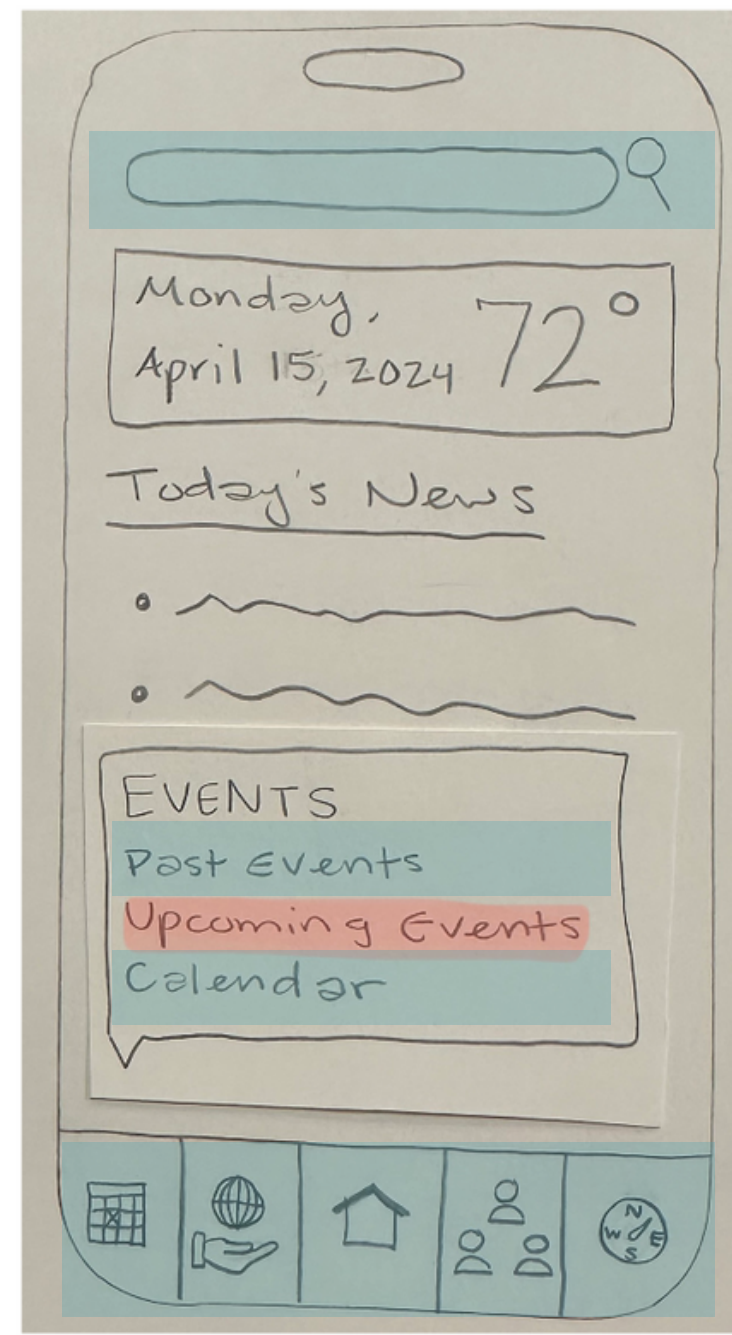 Monday,
April 15, 2024
72°
Today's News
EVENTS
Past Events
Upcoming Events
Calendar
N
W E
S